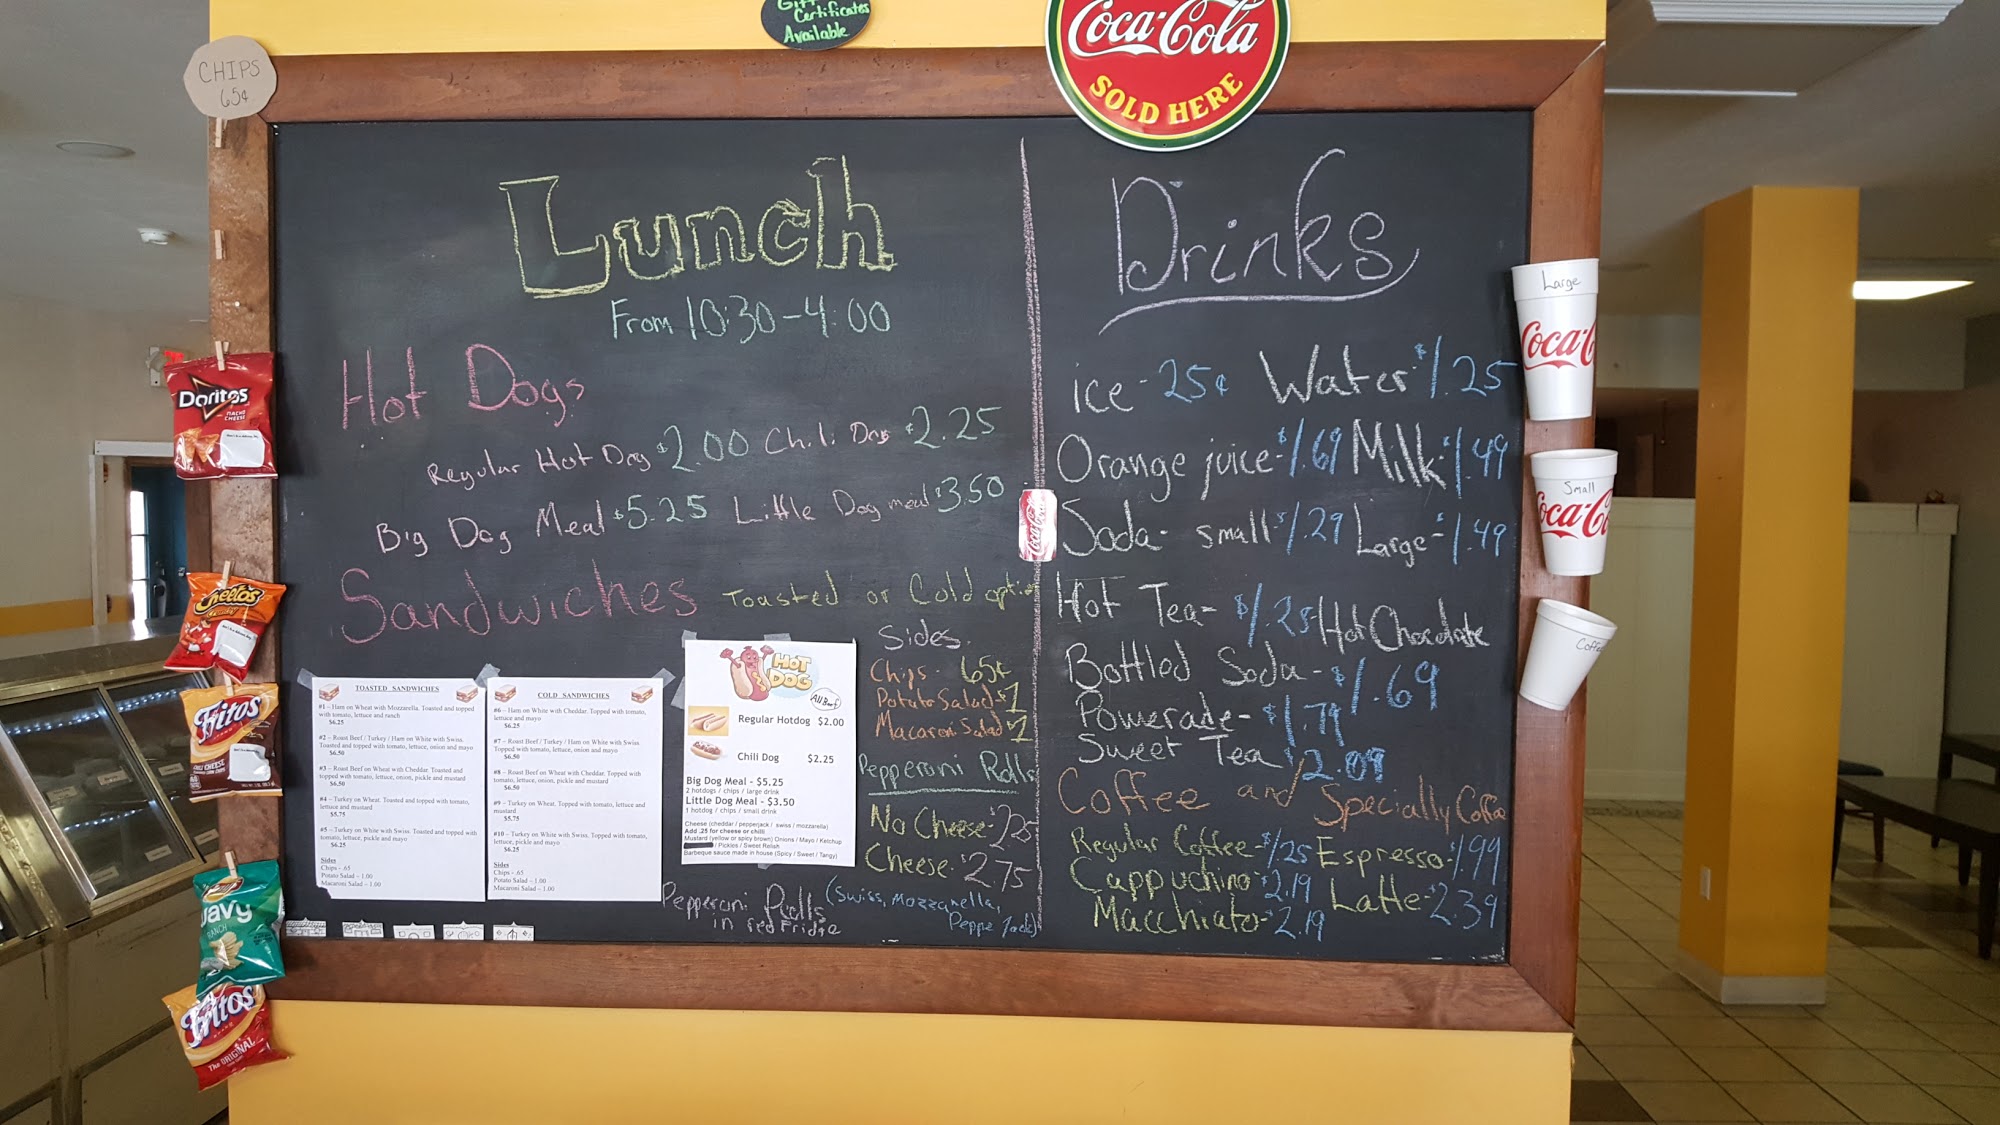 Gift
Certificates
Available
Coca-Cola
SOLD HERE
CHIPS
65¢
Lunch
From 10:30-4:00
Hot Dogs
Regular Hot Dog $2.00 Chili Dog $2.25
Big Dog Meal $5.25 Little Dog meal $3.50
Sandwiches Toasted or Cold option
TOASTED SANDWICHES
#1 – Ham on Wheat with Mozzarella. Toasted and topped
with tomato, lettuce and ranch
$6.25
#2 – Roast Beef / Turkey / Ham on White with Swiss.
Toasted and topped with tomato, lettuce, onion and mayo
$6.50
#3 – Roast Beef on Wheat with Cheddar. Toasted and
topped with tomato, lettuce, onion, pickle and mustard
$6.50
#4 – Turkey on Wheat. Toasted and topped with tomato,
lettuce and mustard
$5.75
#5 – Turkey on White with Swiss. Toasted and topped with
tomato, lettuce, pickle and mayo
$6.25
Sides
Chips - .65
Potato Salad – 1.00
Macaroni Salad – 1.00
COLD SANDWICHES
#6 – Ham on Wheat with Cheddar. Topped with tomato,
lettuce and mayo
$6.25
#7 – Roast Beef / Turkey / Ham on White with Swiss.
Topped with tomato, lettuce, onion and mayo
$6.50
#8 – Roast Beef on Wheat with Cheddar. Topped with
tomato, lettuce, onion, pickle and mustard
$6.50
#9 – Turkey on Wheat. Topped with tomato, lettuce and
mustard
$5.75
#10 – Turkey on White with Swiss. Topped with tomato,
lettuce, pickle and mayo
$6.25
Sides
Chips - .65
Potato Salad – 1.00
Macaroni Salad – 1.00
HOT
DOG
All Beef
Regular Hotdog $2.00
Chili Dog $2.25
Big Dog Meal - $5.25
2 hotdogs / chips / large drink
Little Dog Meal - $3.50
1 hotdog / chips / small drink
Cheese (cheddar / pepperjack / swiss / mozzarella)
Add .25 for cheese or chili
Mustard (yellow or spicy brown) Onions / Mayo / Ketchup
/ Pickles / Sweet Relish
Barbeque sauce made in house (Spicy / Sweet / Tangy)
Sides.
Chips - 65¢
Potato Salad - $1
Macaroni Salad $1
Pepperoni Rolls
No Cheese - $2.25
Cheese - $2.75
(Swiss, Mozzarella,
Pepper Jack)
Pepperoni Rolls
in red Fridge
Drinks
ice - 25¢ Water - $1.25
Orange juice - $1.69 Milk - $1.49
Soda - small - $1.29 Large - $1.49
Hot Tea - $1.25 Hot Chocolate
Bottled Soda - $1.69
Powerade - $1.79
Sweet Tea $2.09
Coffee and Specially Coffee
Regular Coffee - $1.25 Espresso - $1.99
Cappuchino - $2.19 Latte - $2.39
Macchiato - $2.19
Coca-Cola
Large
Coca-C
Small
Coca-Co
Coffee
Doritos
NACHO
CHEESE
Cheetos
Crunchy
Fritos
CHILI CHEESE
Wavy
RANCH
Fritos
The ORIGINAL